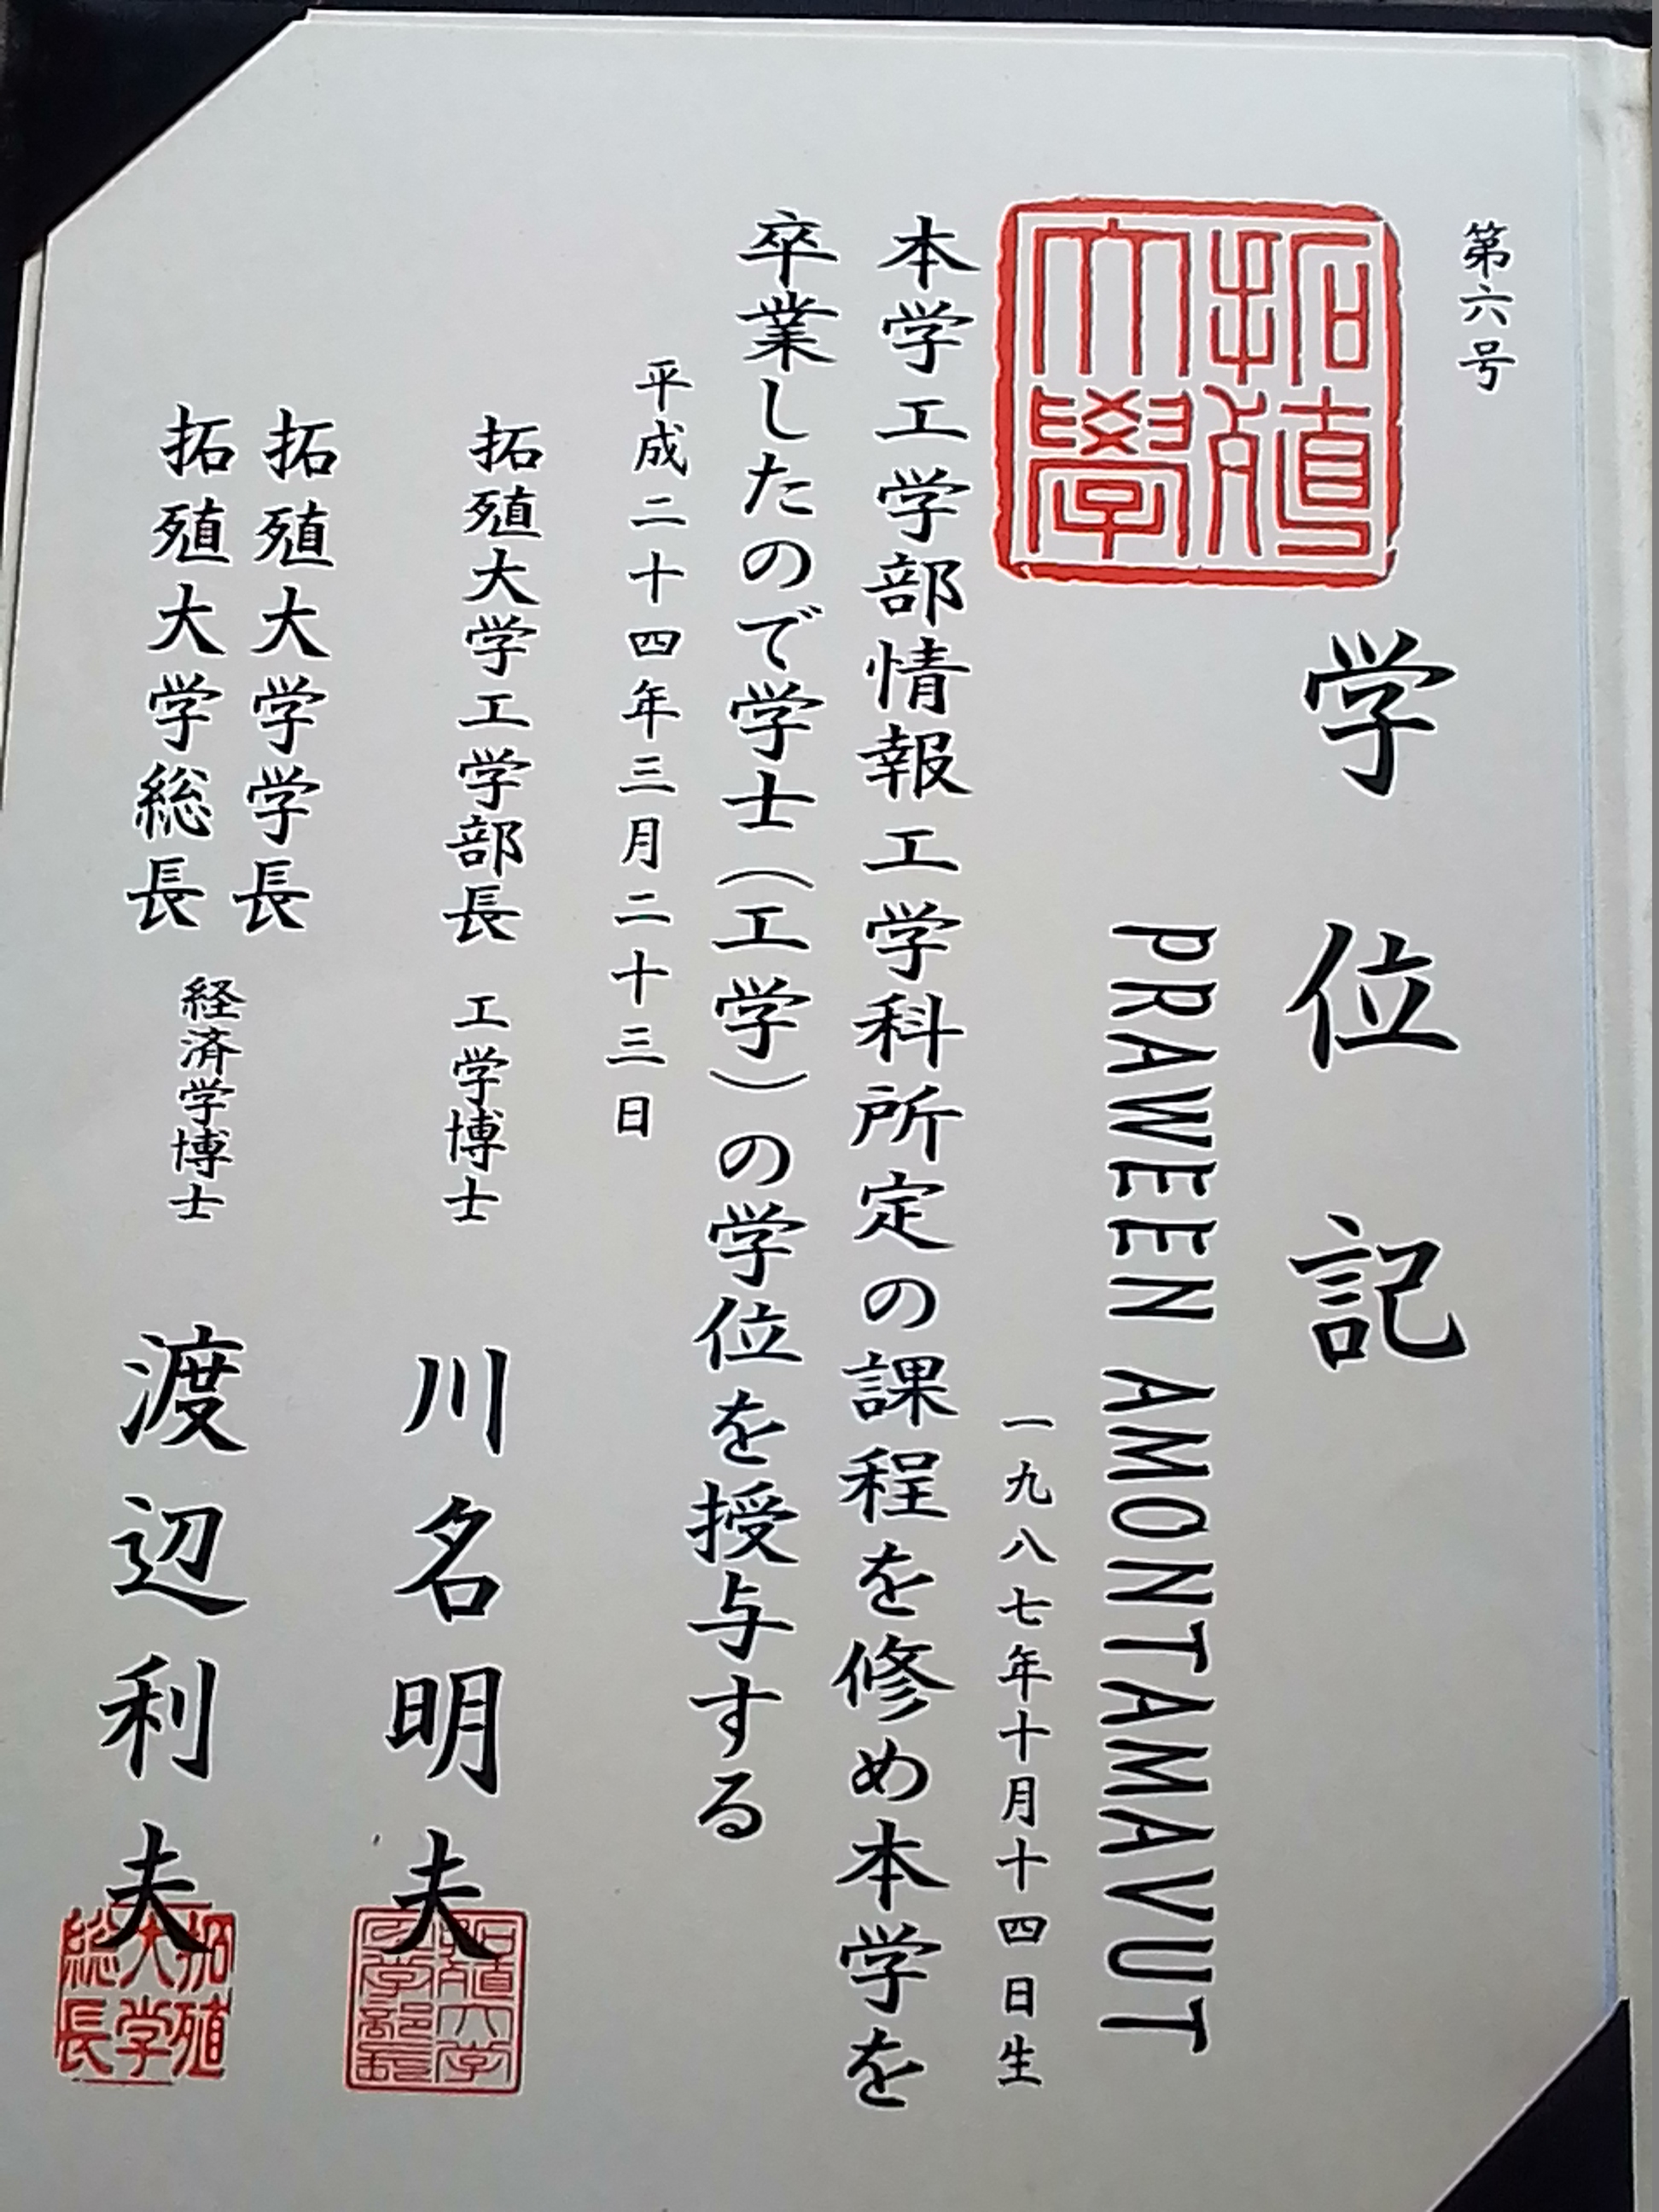 第六号
学位記
拓殖大學
PRAWEEN AMONTAMAVUT
一九八七年十月十四日生
本学工学部情報工学科所定の課程を修め本学を
卒業したので学士（工学）の学位を授与する
平成二十四年三月二十三日
拓殖大学工学部長 工学博士 川名明夫
拓殖大学工学部長
拓殖大学学長
拓殖大学総長 経済学博士 渡辺利夫
拓殖大学総長